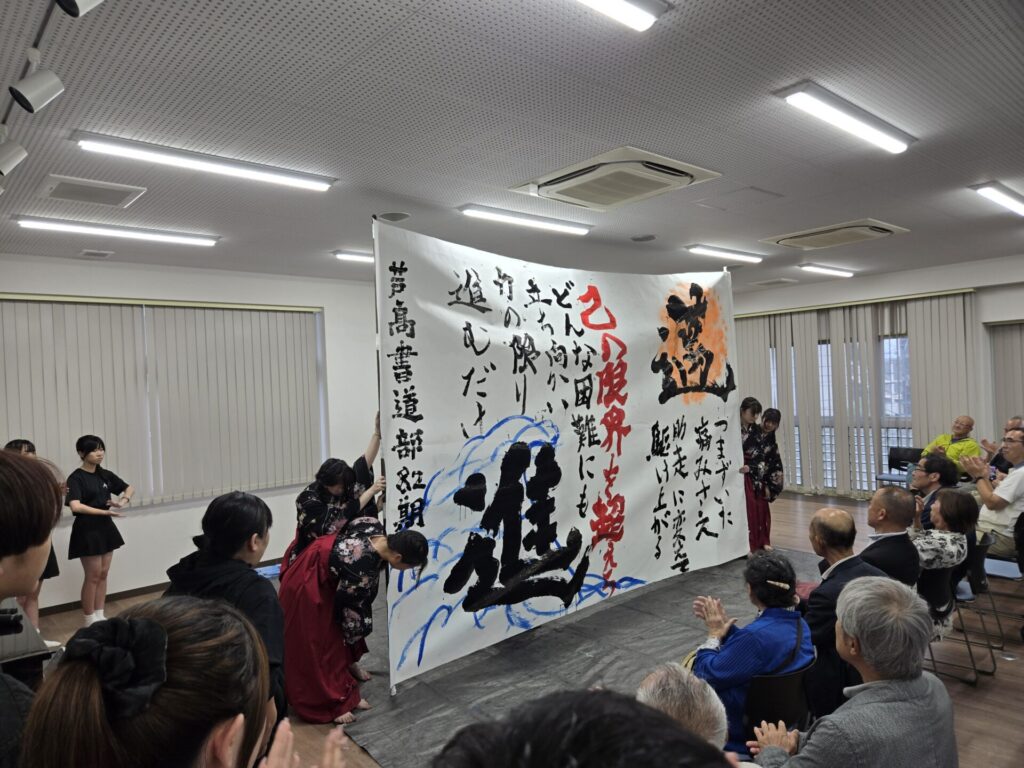 邁
つまずいた
痛みさえ
助走に変えて
駆け上がる
己の限界を超えろ
どんな困難にも
立ち向かい
力の限り
進むだけ
進
芦高書道部82期